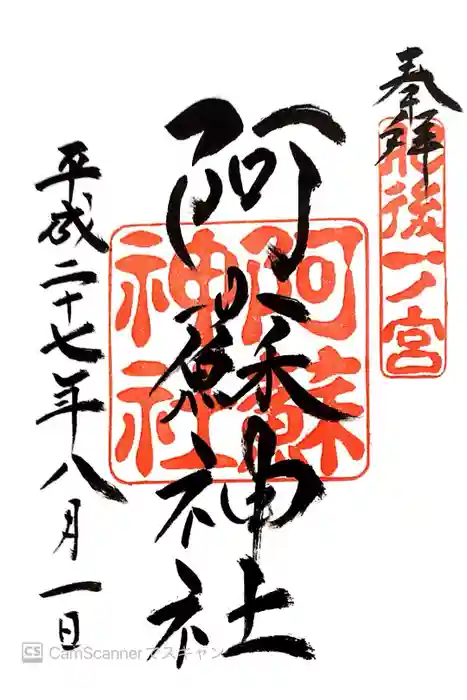 奉拝
肥後一ノ宮
阿蘇神社
阿蘇神社
平成二十七年八月一日
CS CamScanner でスキャン